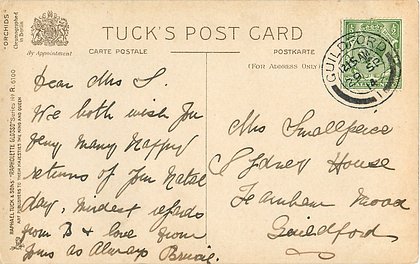 TUCK'S POST CARD
CARTE POSTALE
POSTKARTE
(FOR ADDRESS ONLY)
By Appointment
"ORCHIDS"
Chromographed
in Britain
RAPHAEL TUCK & SONS "RAPHOLETTE GLOSSO" SERIES No R. 6100
ART PUBLISHERS TO THEIR MAJESTIES THE KING AND QUEEN
GUILDFORD
14
1
Dear Mrs S.
We both wish you
very many happy
returns of your Natal
day, kindest regards
from B & love from
yours as Always
Mrs Smallpeice
Sydney House
Farnham Road
Guildford